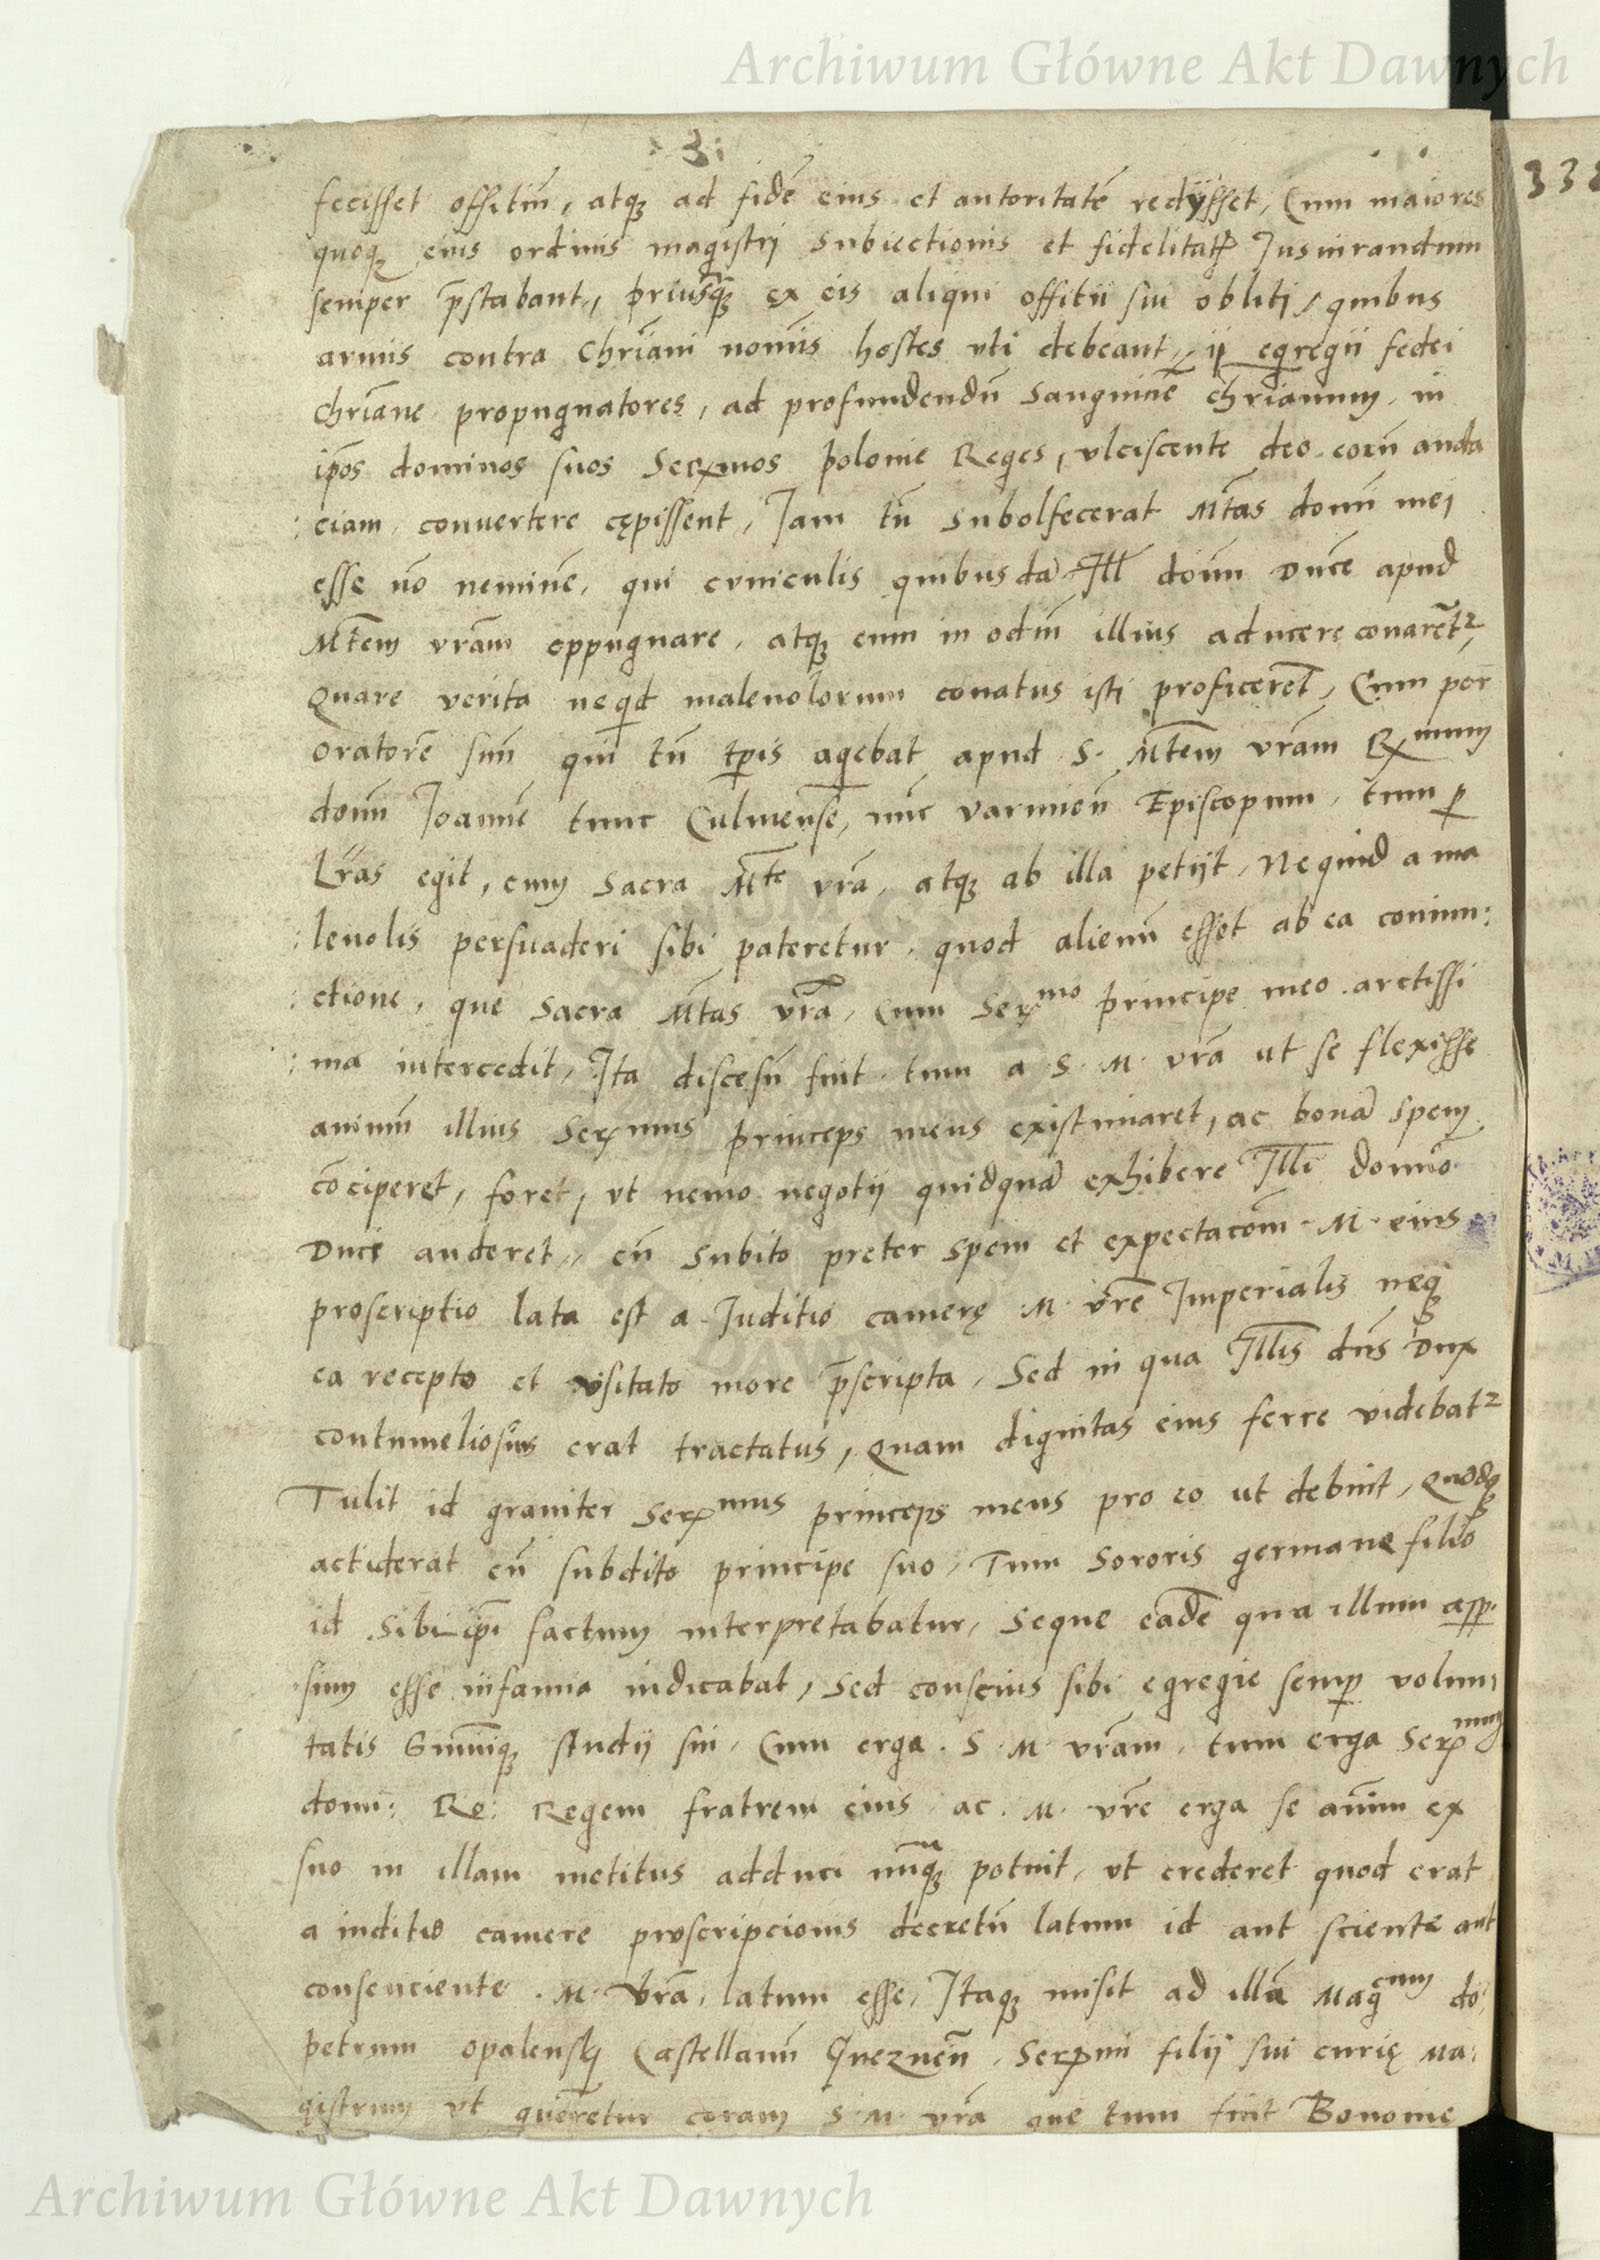 Archiwum Główne Akt Dawnych
3
338
fecisset offitiū, atqꝫ ad fidē eius et autoritatē redÿsset, Cum maiores
quoqꝫ eius ordinis magistri subiectionis et fidelitatꝭ Iusiurandum
semper p̄stabant, priusq̄ꝫ ex eis aliqui offitii sui obliti, quibus
armis contra Chr̄iani nom̄is hostes vti debeant, ij egregii fedei
Chr̄iane propugnatores, ad profundendū Sanguinē chr̄ianum, in
ip̄os dominos suos Serꝳmos polonie Reges, vlciscente deo eorū auda
ciam, convertere cępissent, Iam tū subolfecerat M̄tas domī mei
esse nō neminē, qui cuniculis quibusdā Ill̄ dom̄ Ducē apud
M̄tem vrām oppugnare, atqꝫ eum in odiū illius aducere conarēt᷑,
Quare verita neqd malevolorum conatus isti proficerēt, Cum per
oratorē suū qui tū tp̄is agebat apud S. M̄tem vrām Rmum
dom̄ Ioannē tunc Culmensē, nūc varmieñ Episcopum, tum ꝑ
Lr̄as egit, cum Sacra M̄te vrā, atqꝫ ab illa petijt, Ne quid a ma
levolis persuaderi sibi pateretur, quod alienū esset ab ea coniun:
ctione, que Sacra M̄tas vrā, Cum Sermo principe meo arctissi
ma intercedit, Ita discesū fuit tum a S. M. vrā ut se flexisse
animū illius Sermus princeps meus existimaret, ac bonā spem
cōciperet, foret, vt nemo negotij quidquā exhibere Ill̄i domīo
Duci auderet, cū subito preter spem et expectacōm M. eius
proscriptio lata est a Juditio camerę M. vrē Imperialis neqꝫ
ea recepto et vsitato more p̄scripta, Sed in qua Ill̄is dn̄s Dux
contumeliosius erat tractatus, quam dignitas eius ferre videbat᷑
Tulit id graviter Sermus princeps meus pro eo ut debuit, Quodqꝫ
actiderat cū subdito principe suo, Tum Sororis germane filio
id sibi ip̄i factum interpretabatur, Seque eadē qua illum asp̱:
sum esse infamia iudicabat, Sed conscius sibi egregie semꝑ volun:
tatis summiqꝫ studij sui, Cum erga S. M. vrām, tum erga Sermum
dom: Ro: Regem fratrem eius ac M. vrē erga se anim̄ ex
suo in illam metitus adduci nūqꝫ potuit, vt crederet quod erat
a iuditio camere proscripcionis decretū latum id aut sciente aut
consenciente M. Vrā, latum esse, Itaqꝫ misit ad illā Magcum do:
petrum opalensky Castellanū Gnezneñ, Sermi filij sui curię Ma:
gistrum vt quereretur coram S. M. vrā que tum fuit Bononie
Archiwum Główne Akt Dawnych